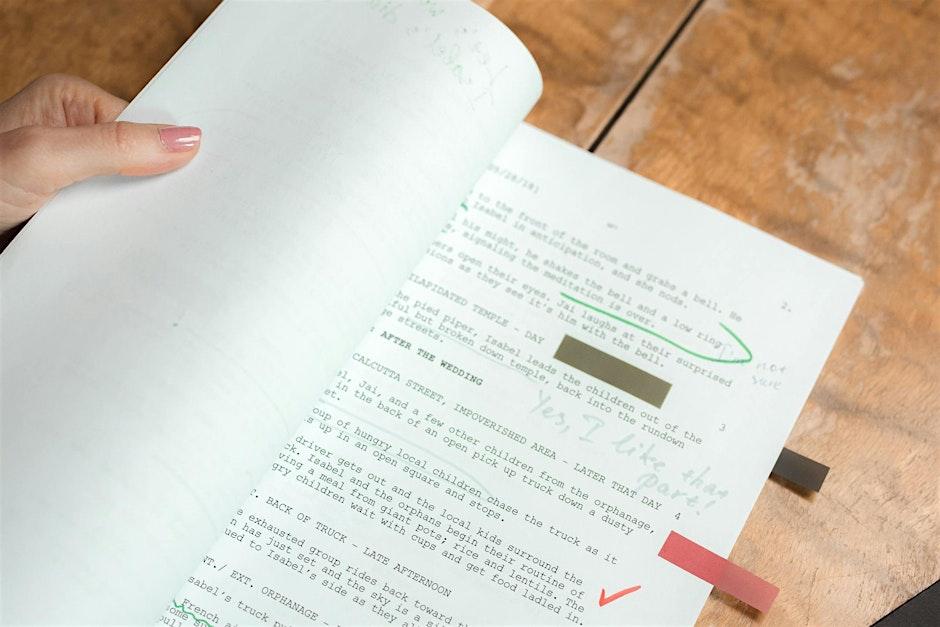 09/28/18)
2.
to the front of the room and grabs a bell. He
Isabel in anticipation, and she nods.
his might, he shakes the bell and a low ring
s, signaling the meditation is over.
ers open their eyes. Jai laughs at their surprised
ions as they see it's him with the bell.
not
sure
ILAPIDATED TEMPLE - DAY
3
he pied piper, Isabel leads the children out of the
ful but broken down temple, back into the rundown
ge streets.
Yes, I like that
part,
AFTER THE WEDDING
CALCUTTA STREET, IMPOVERISHED AREA - LATER THAT DAY
4
el, Jai, and a few other children from the orphanage,
et in the back of an open pick up truck down a dusty
et.
oup of hungry local children chase the truck as it
s up in an open square and stops.
driver gets out and the local kids surround the
ck. Isabel and the orphans begin their routine of
ving a meal from giant pots; rice and lentils. The
gry children wait with cups and get food ladled in.
. BACK OF TRUCK - LATE AFTERNOON
e exhausted group rides back toward
n has just set and the sky is a
ued to Isabel's side as they
NT./ EXT. ORPHANAGE -
sabel's truck
French
ome
pull